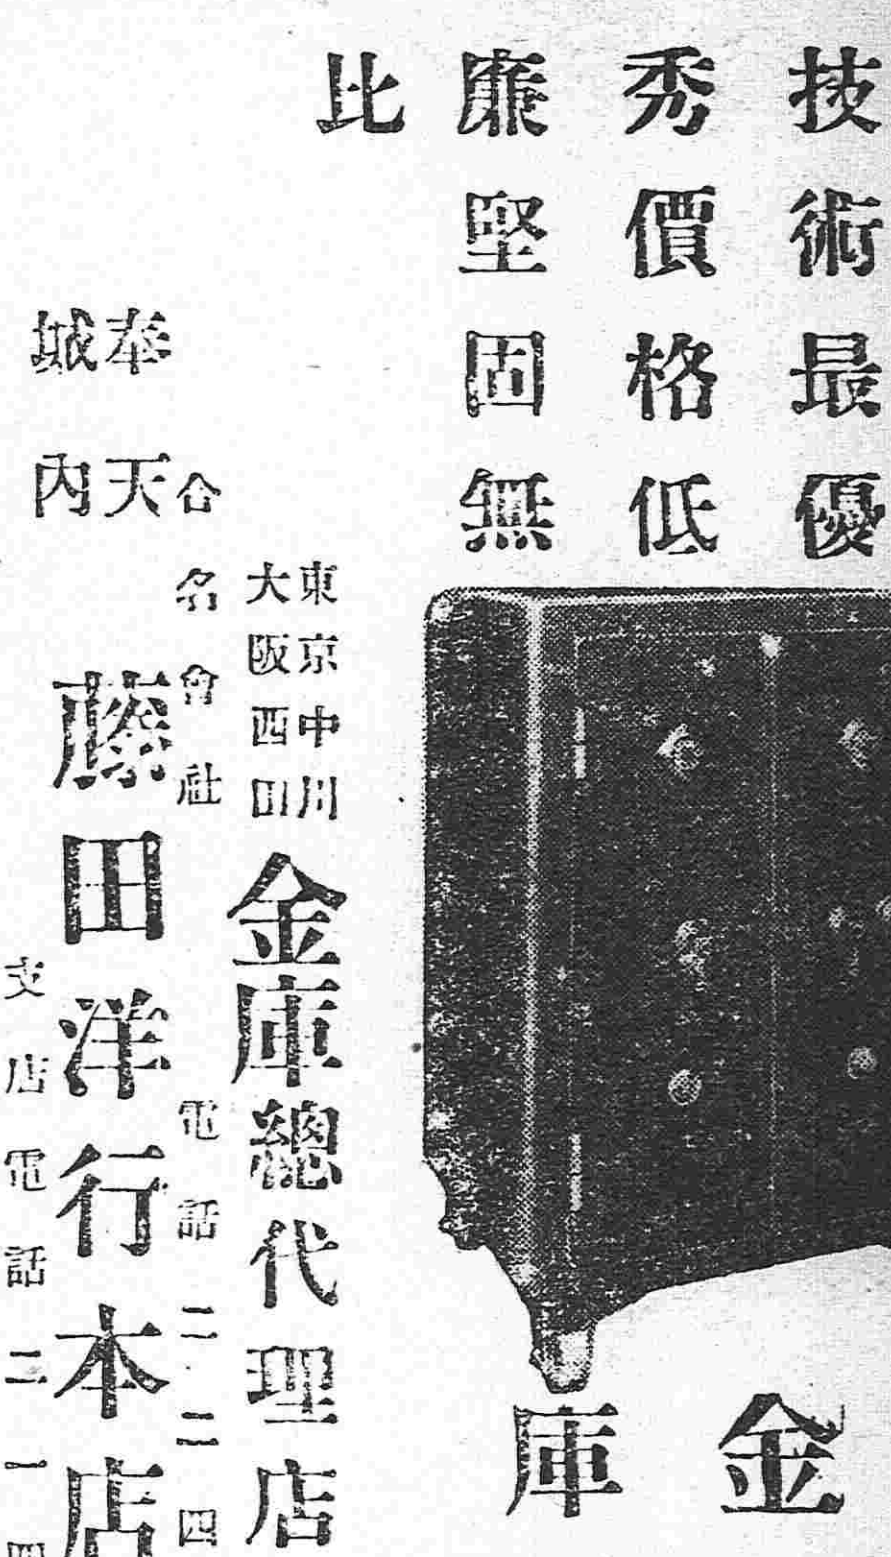 技術最優
秀價格低
廉堅固無
比
金庫
東京中川
大阪西田
金庫總代理店
合名會社
電話二二四
奉天
城內
藤田洋行本店
支店電話二一四